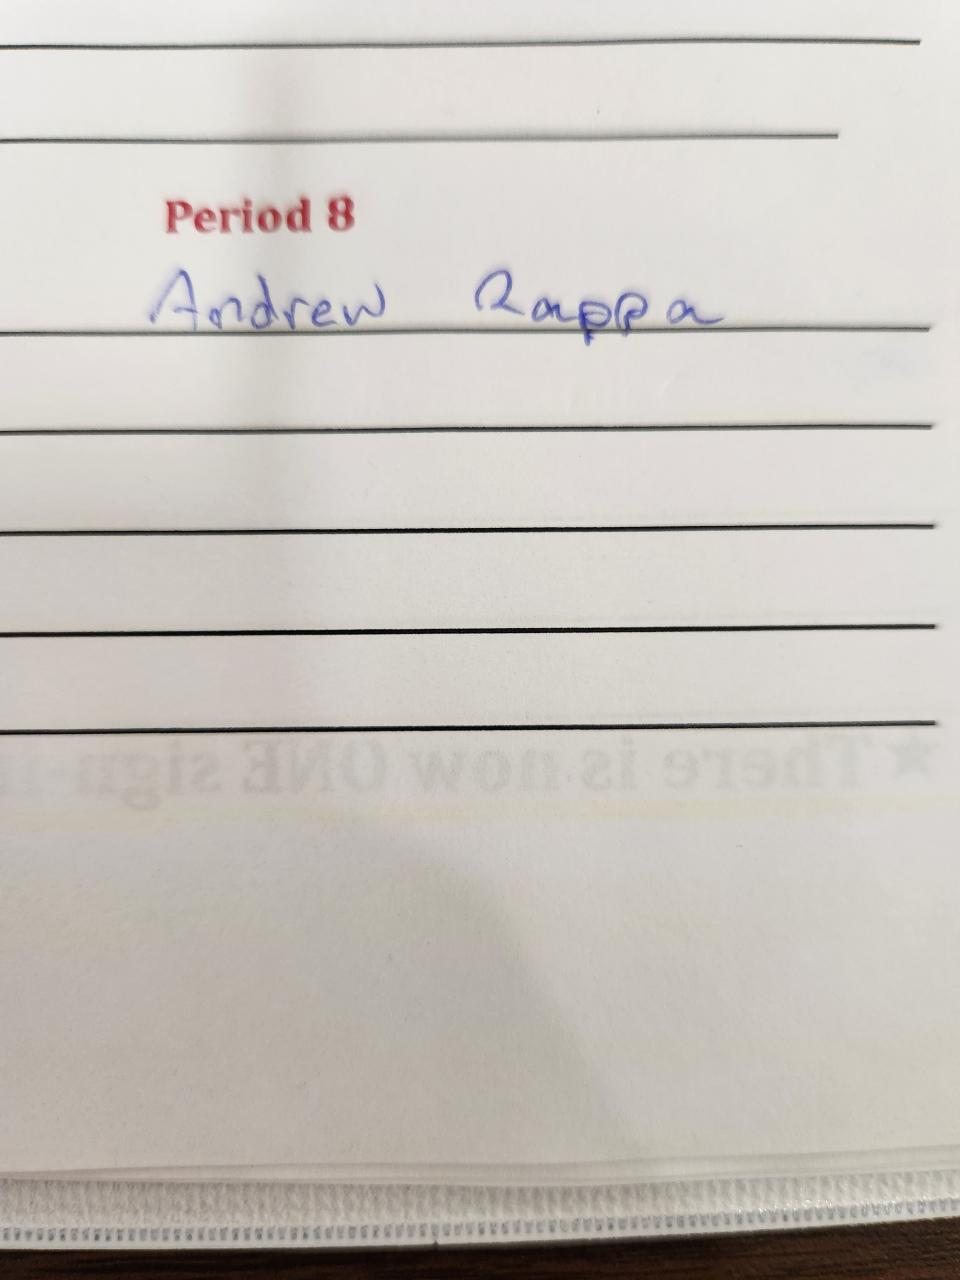 Period 8
Andrew Rappa
★There is now ONE sign-i